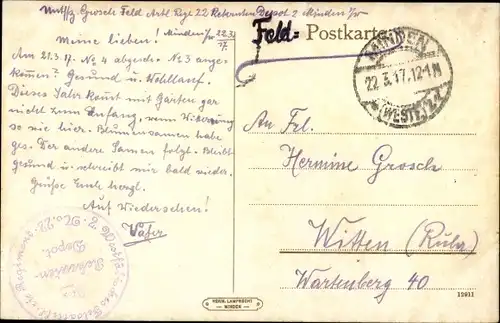 Grosch Feld Artl Rgt 22 Rekruten Depot 2 Minden i/w
Feld= Postkarte
Minden i/w 22.3.
17.
Meine lieben!
Am 21.3.17. No 4 abgesch. No 3 ange-
kommen? Gesund u. Wohlauf.
Dieses Jahr kaust mit Garten gar
nicht zum Anfang, wenn Witterung
so wie hier. Blumensamen habe
ges. Der andere Samen folgt. Bleibt
gesund u. schreibt mir bald wieder.
Grüße Euch herzl.
Auf Wiedersehen!
Vater
MINDEN
22.3.17.12-1N
(WESTF.)
An Frl.
Hermine Grosch
Witten (Ruhr)
Wartenberg 40
Rekruten-
Depot
No. 22.
HERM. LAMPRECHT
MINDEN
12911